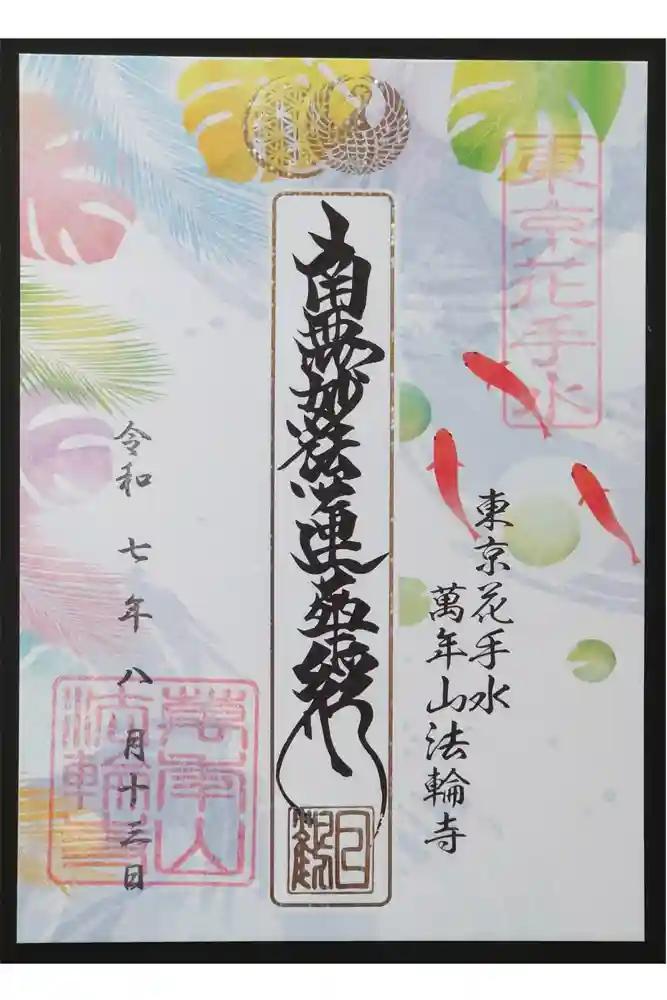 東京花手水
東京花手水
萬年山法輪寺
南無妙法蓮華経
令和七年八月十三日
萬年山
法輪寺